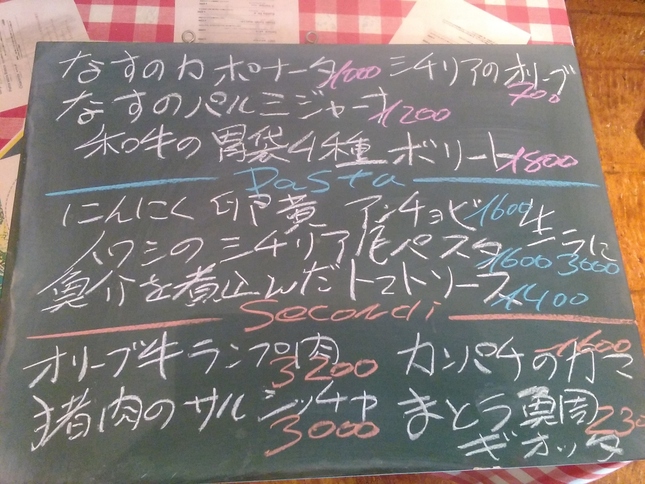 なすのカポナータ 1000 シチリアのオリーブ 700
なすのパルミジャーナ 1200
和牛の胃袋4種ボリート 1800
Pasta
にんにく 卵黄 アンチョビ 1600 生ウニ 3000
イワシのシチリア風パスタ 1600
魚介を煮込んだトマトソース 1400
Secondi
オリーブ牛ランプ肉 3200 カンパチのカマ 1600
猪肉のサルシッチャ 3000 まとう鯛 230
ギオッタ